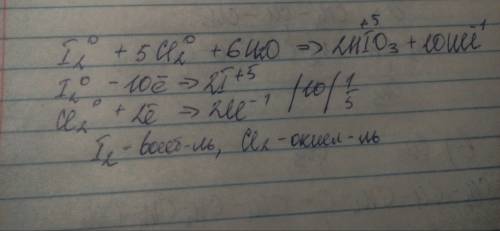 I₂⁰ + 5Cl₂⁰ + 6H₂O ⇒ 2HI⁺⁵O₃ + 10HCl⁻¹
I₂⁰ - 10ē ⇒ 2I⁺⁵ | 10 | 1
Cl₂⁰ + 2ē ⇒ 2Cl⁻¹ | 5
I₂ - восст-ль, Cl₂ - окисл-ль